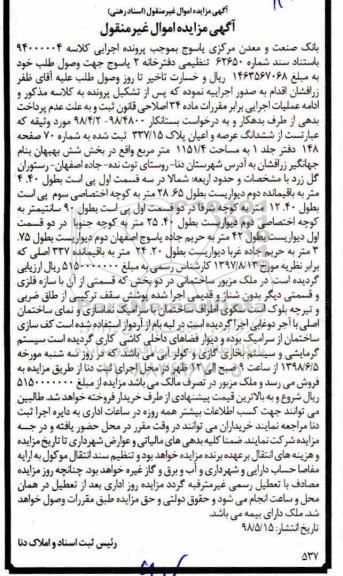 آگهی مزایده اموال غیر منقول (اسناد رهنی)
آگهی مزایده اموال غیر منقول
بانک صنعت و معدن مرکزی یاسوج بموجب پرونده اجرایی کلاسه ۹۴۰۰۰۰۴
باستناد سند شماره ۶۲۶۵۰ تنظیمی دفترخانه ۲ یاسوج جهت وصول طلب خود
به مبلغ ۱۴۶۳۵۶۷۰۶۸ ریال و خسارت تاخیر تا روز وصول طلب علیه آقای ظفر
زرافشان اقدام به صدور اجراییه نموده که پس از تشکیل پرونده به کلاسه مذکور و
ادامه عملیات اجرایی برابر مقررات ماده ۳۴ اصلاحی قانون ثبت و به علت عدم پرداخت
بدهی از طرف بدهکار و به درخواست بستانکار ۹۸۴۸۰۰-۹۸/۴/۲ مورد وثیقه که
عبارتست از ششدانگ عرصه و اعیان پلاک ۳۳۷/۱۵ ثبت شده به شماره ۷۰ صفحه
۱۴۸ دفتر جلد ۱ به مساحت ۱۱۵۱/۴ متر مربع واقع در بخش شش بهبهان بنام
جهانگیر زرافشان به آدرس شهرستان دنا-روستای توت نده-جاده اصفهان-رستوران
گل زرد با مشخصات و حدود اربعه: شمالا در سه قسمت اول پی است بطول ۴.۴۰
متر به باقیمانده دوم دیواریست بطول ۲۸.۶۵ متر به کوچه اختصاصی سوم پی است
بطول ۱۲.۴۰ متر به کوچه شرقا در دو قسمت اول پی است بطول ۹۰ سانتیمتر به
کوچه اختصاصی دوم دیواریست بطول ۲۵.۴۰ متر به کوچه جنوبا در دو قسمت
اول دیواریست بطول ۴۲ متر به حریم جاده یاسوج اصفهان دوم دیواریست بطول ۷۵.
۳ متر به حریم جاده غربا دیواریست بطول ۲۴.۲۰ متر به باقیمانده ۳۳۷ اصلی که
برابر نظریه مورخ ۱۳۹۷/۸/۱۳ کارشناس رسمی به مبلغ ۵۱۵۰۰۰۰۰۰۰ ریال ارزیابی
گردیده است. در ملک مزبور ساختمانی در دو بخش که قسمتی از آن با سازه فلزی
و قسمتی دیگر بدون شناژ و قدیمی اجرا شده پوشش سقف ترکیبی از طاق ضربی
و تیرچه بلوک است سکوی اطراف ساختمان با سرامیک نماسازی و نمای ساختمان
اصلی با آجر دوغابی اجرا گردیده است در لبه بام از آردواز استفاده شده است کف سازی
ساختمان از سرامیک بوده و دیوار فضاهای داخلی کاشی کاری گردیده است سیستم
گرمایشی و سیستم بخاری گازی و کولر آبی می باشد که در روز سه شنبه مورخه
۱۳۹۸/۶/۵ از ساعت ۹ صبح الی ۱۲ ظهر در محل اجرای ثبت دنا از طریق مزایده به
فروش می رسد و ملک مزبور در تصرف مالک می باشد مزایده از مبلغ ۵۱۵۰۰۰۰۰۰۰
ریال شروع و به بالاترین قیمت پیشنهادی از طرف خریدار فروخته خواهد شد. طالبین
می توانند جهت کسب اطلاعات بیشتر همه روزه در ساعات اداری به دایره اجرا ثبت
دنا مراجعه نمایند خریداران می توانند در وقت مقرر در محل حضور یافته و در جلسه
مزایده شرکت نمایند. ضمنا کلیه بدهی های مالیاتی و عوارض شهرداری تا تاریخ مزایده
و هزینه های انتقال برعهده برنده مزایده خواهد بود و تنظیم سند انتقال موکول به ارایه
مفاصا حساب دارایی و شهرداری و آب و برق و گاز غیره خواهد بود. چنانچه روز مزایده
مصادف با تعطیل رسمی غیرمترقبه گردد مزایده روز اداری بعد از تعطیل در همان
محل و ساعت انجام می شود و حقوق دولتی و حق مزایده طبق مقررات وصول خواهد
شد. ملک دارای بیمه می باشد.
تاریخ انتشار: ۹۸/۵/۱۵
رئیس ثبت اسناد و املاک دنا
۵۳۷